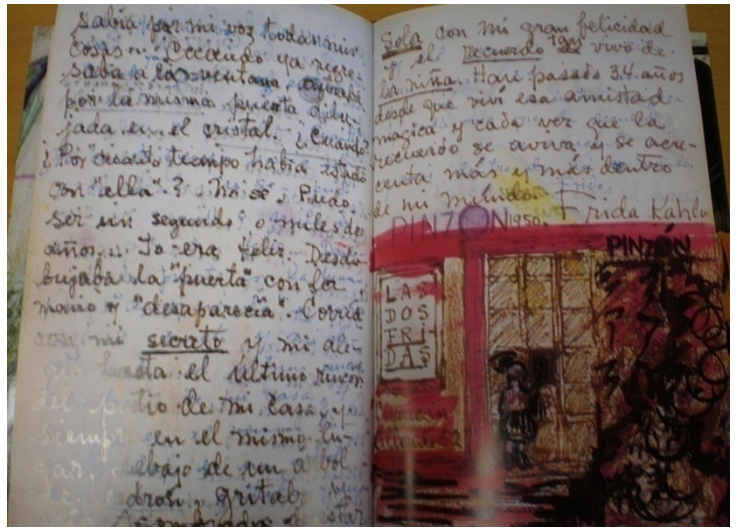 Sabía por mi voz todas mis
cosas... Cuando ya regre-
saba a la ventana, entraba
por la misma puerta dibu-
jada en el cristal. ¿Cuando?
¿Por cuanto tiempo había estado
con "ella"? No sé. Pudo
ser un segundo o miles de
años... Yo era feliz. Desdi
bujaba la "puerta" con la
mano y "desaparecía". Corría
con mi secreto y mi ale-
hasta el último rincon
del patio de mi casa, y
siempre en el mismo lu-
gar, debajo de un arbol
de cedron, gritab
Asombrada de estar
Sola con mi gran felicidad
y el recuerdo vivo de
la niña. Han pasado 34 años
desde que viví esa amistad
mágica y cada vez que la
recuerdo se aviva y se acre-
centa más y más dentro
de mi mundo.
PINZÓN 1950. Frida Kahlo
PINZÓN
LAS
DOS
FRI
DAS